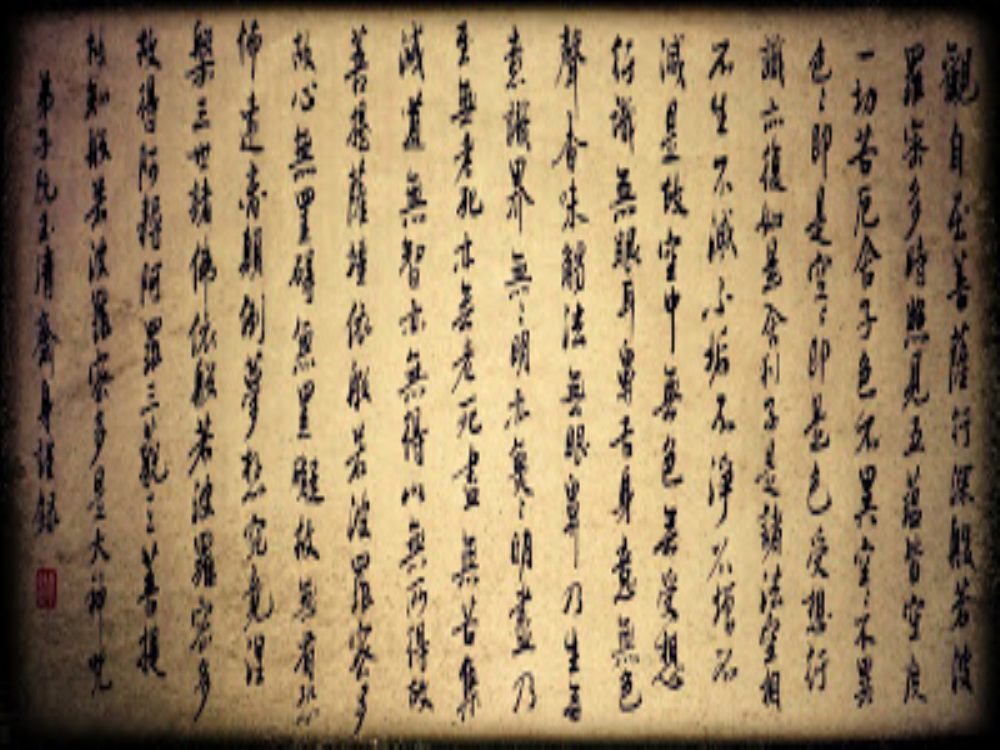 觀自在菩薩行深般若波
羅蜜多時照見五蘊皆空度
一切苦厄舍子色不異空〻不異
色〻即是空〻即是色受想行
識亦復如是舍利子是諸法空相
不生不滅不垢不淨不增不
減是故空中無色無受想
行識無眼耳鼻舌身意無色
聲香味觸法無眼界乃至無
意識界無〻明亦無〻明盡乃
至無老死亦無老死盡無苦集
滅道無智亦無得以無所得故
菩提薩埵依般若波羅蜜多
故心無罣礙無罣礙故無有恐
怖遠離顛倒夢想究竟涅
槃三世諸佛依般若波羅蜜多
故得阿耨何羅三藐三菩提
故知般若波羅蜜多是大神咒
弟子阮玉清齋身謹錄